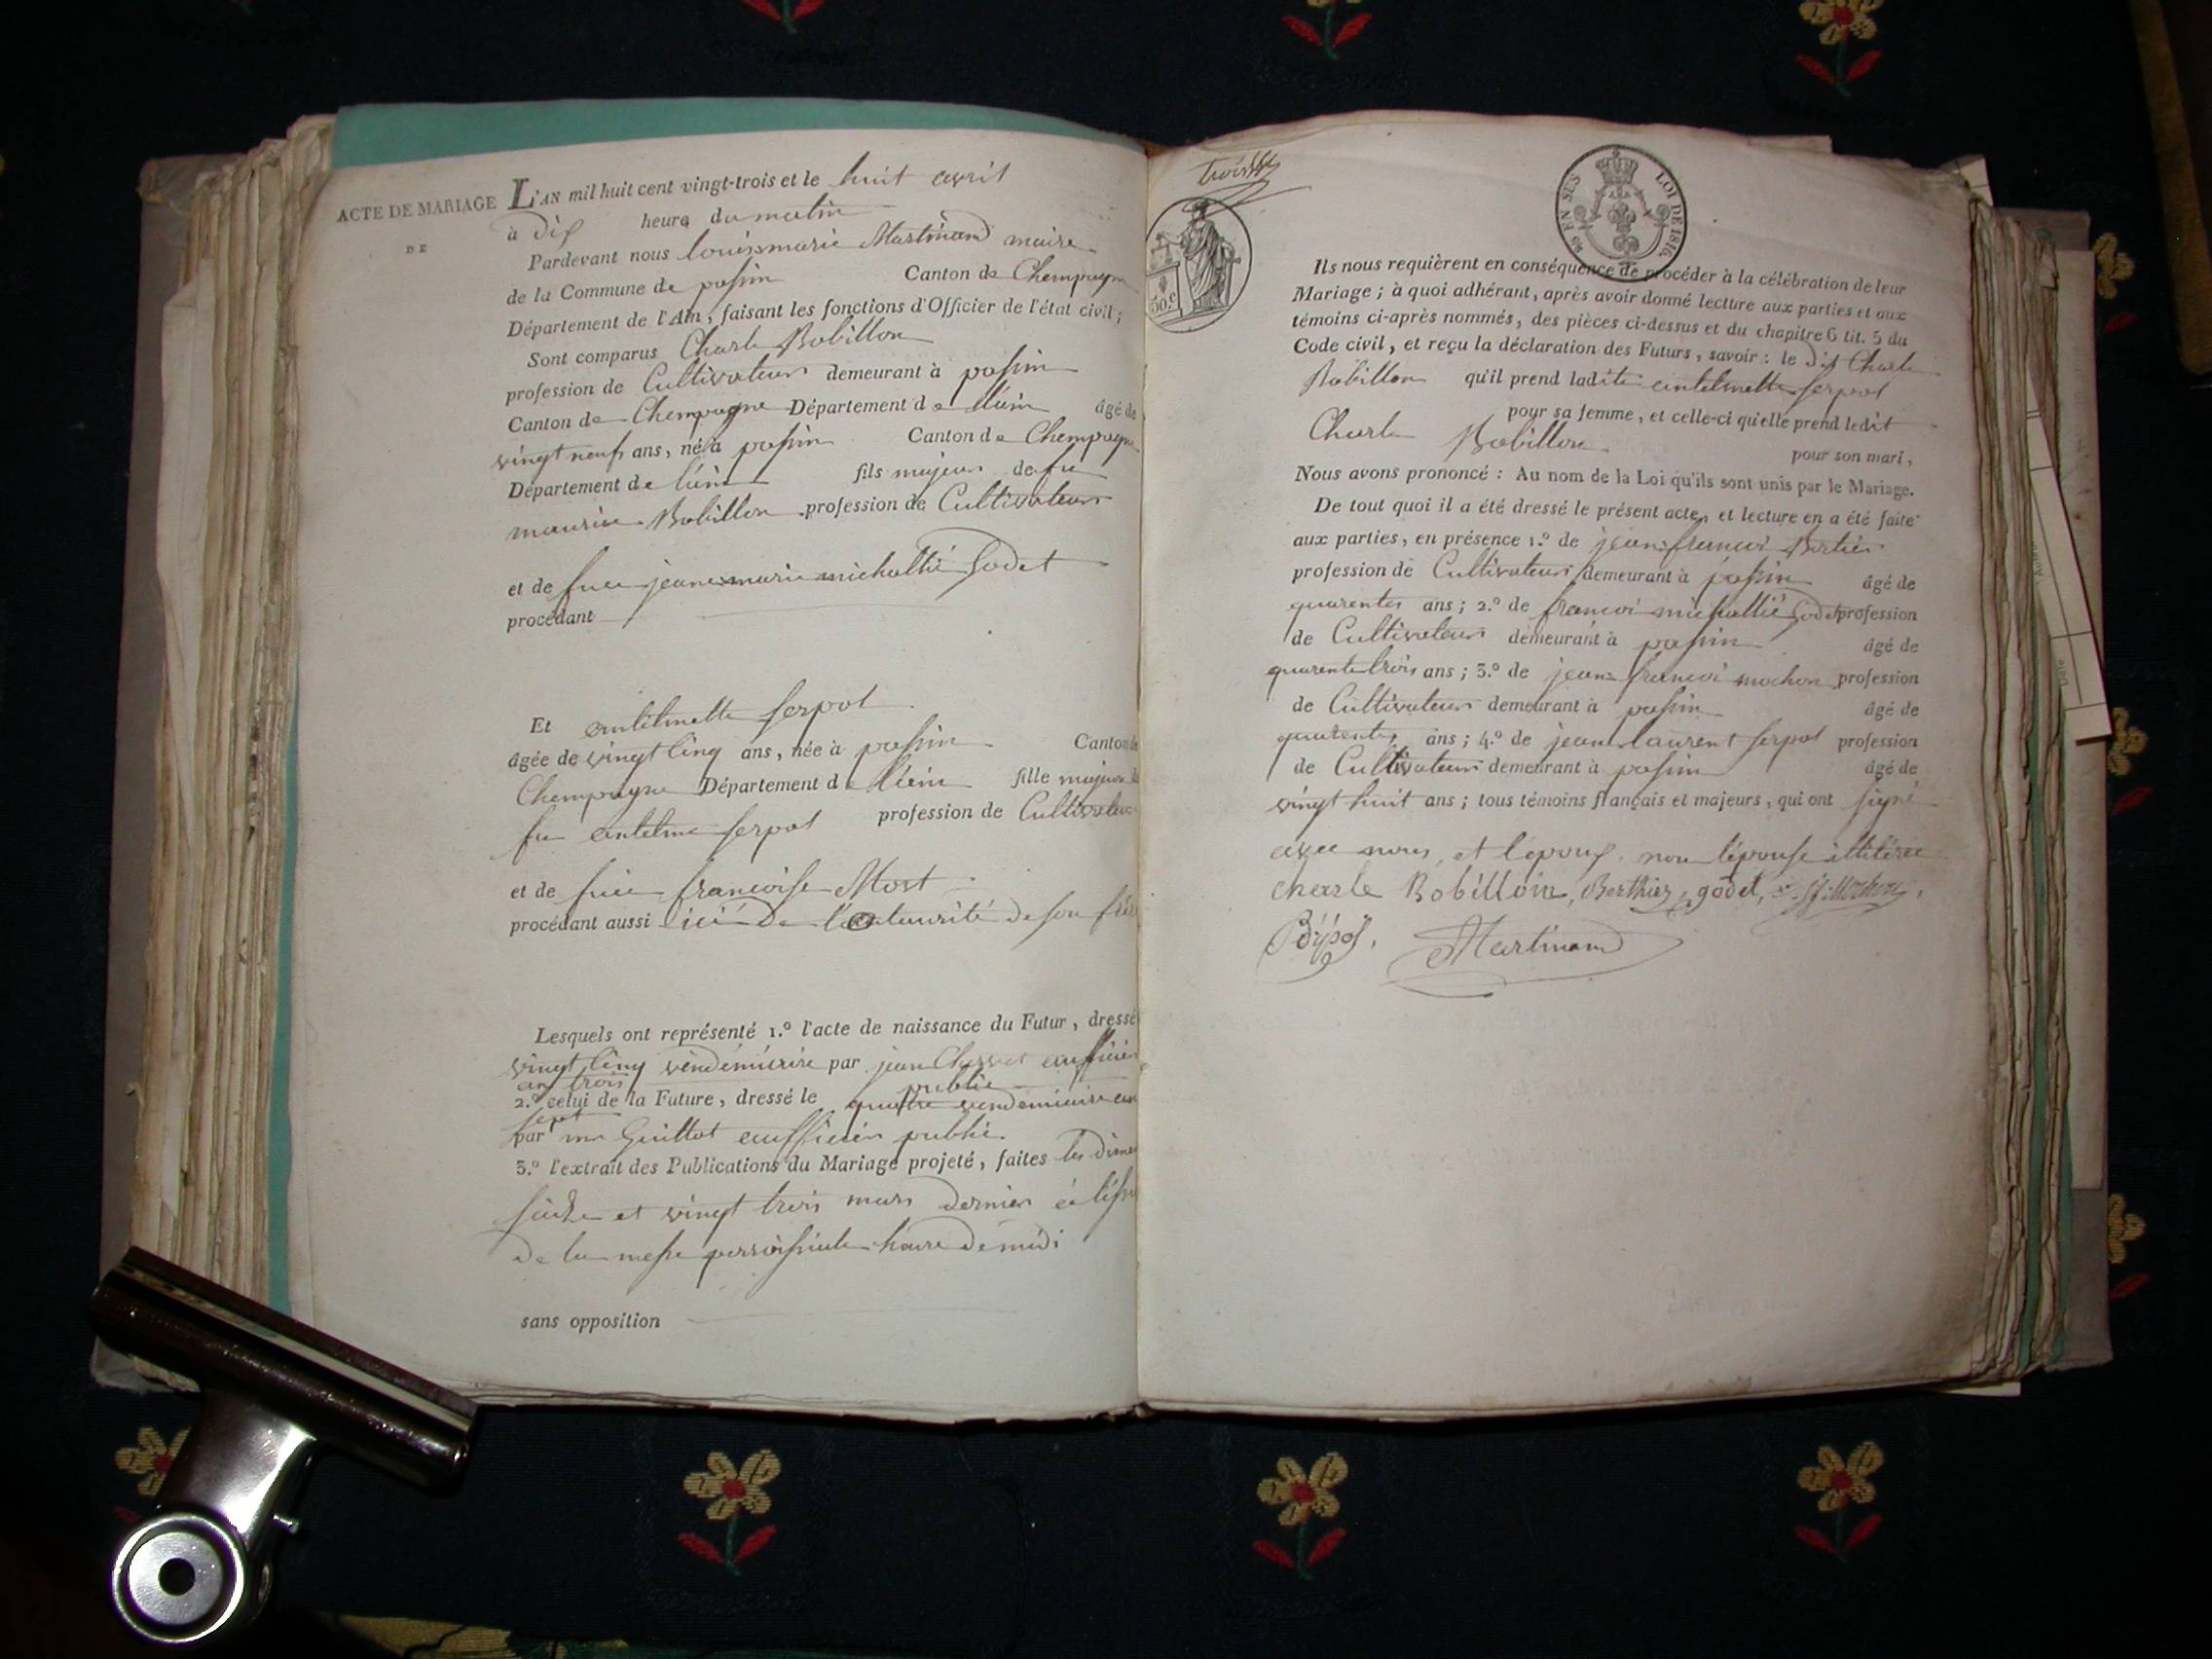 ACTE DE MARIAGE
DE
L'AN mil huit cent vingt-trois et le huit avril
à dix heure du matin
Pardevant nous louis marie Martinand maire
de la Commune de passin Canton de Champagne
Département de l'Ain, faisant les fonctions d'Officier de l'état civil;
Sont comparus Charle Robillon
profession de Cultivateur demeurant à passin
Canton de Champagne Département de l'ain âgé de
vingt neuf ans, né à passin Canton de Champagne
Département de l'ain fils majeur de fu
maurice Robillon profession de Cultivateur
et de fue jeanemarie michallié Godet
procédant
Et antelmette serpol
âgée de vingt cinq ans, née à passin Canton de
Champagne Département de l'ain fille majeure de
fu antelme serpol profession de Cultivateur
et de fue francoise Mort
procédant aussi ici de l'autaurité de son frère
Lesquels ont représenté 1.° l'acte de naissance du Futur, dressé
vingt cinq vendémiaire par jean officier
an trois public
2.° celui de la Future, dressé le quatre vendemiaire an
sept
par Guillot publié.
3.° l'extrait des Publications du Mariage projeté, faites les
seize et vingt trois mars dernier à
de la messe parroissiale heure de midi
sans opposition
trois
50.c
EN SUS LOI DE 1816
Ils nous requièrent en conséquence de procéder à la célébration de leur
Mariage; à quoi adhérant, après avoir donné lecture aux parties et aux
témoins ci-après nommés, des pièces ci-dessus et du chapitre 6 tit. 5 du
Code civil, et reçu la déclaration des Futurs, savoir: le dit Charle
Robillon qu'il prend ladite antelmette serpol
pour sa femme, et celle-ci qu'elle prend ledit
Charle Robillon pour son mari,
Nous avons prononcé: Au nom de la Loi qu'ils sont unis par le Mariage.
De tout quoi il a été dressé le présent acte, et lecture en a été faite
aux parties, en présence 1.° de jean francoi Bertier
profession de Cultivateur demeurant à passin âgé de
quarente ans; 2.° de francoi michallié Godet profession
de Cultivateur demeurant à passin âgé de
quarente trois ans; 3.° de jean francoi mochon profession
de Cultivateur demeurant à passin âgé de
quarente ans; 4.° de jean laurent serpol profession
de Cultivateur demeurant à passin âgé de
vingt huit ans; tous témoins français et majeurs, qui ont signé
avec nous, et l'epoux. non l'épouse illitérée
charle Robilloin, Berthier, godet, Mochon,
Martinand